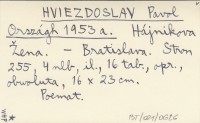 HVIEZDOSLAV Pavol
Országh 1953 a. Hájnikova
žena. – Bratislava. Stvn
255, 4 nlb, il, 16 tab., opr.,
obwoluta, 16 x 23 cm.
Poemat.